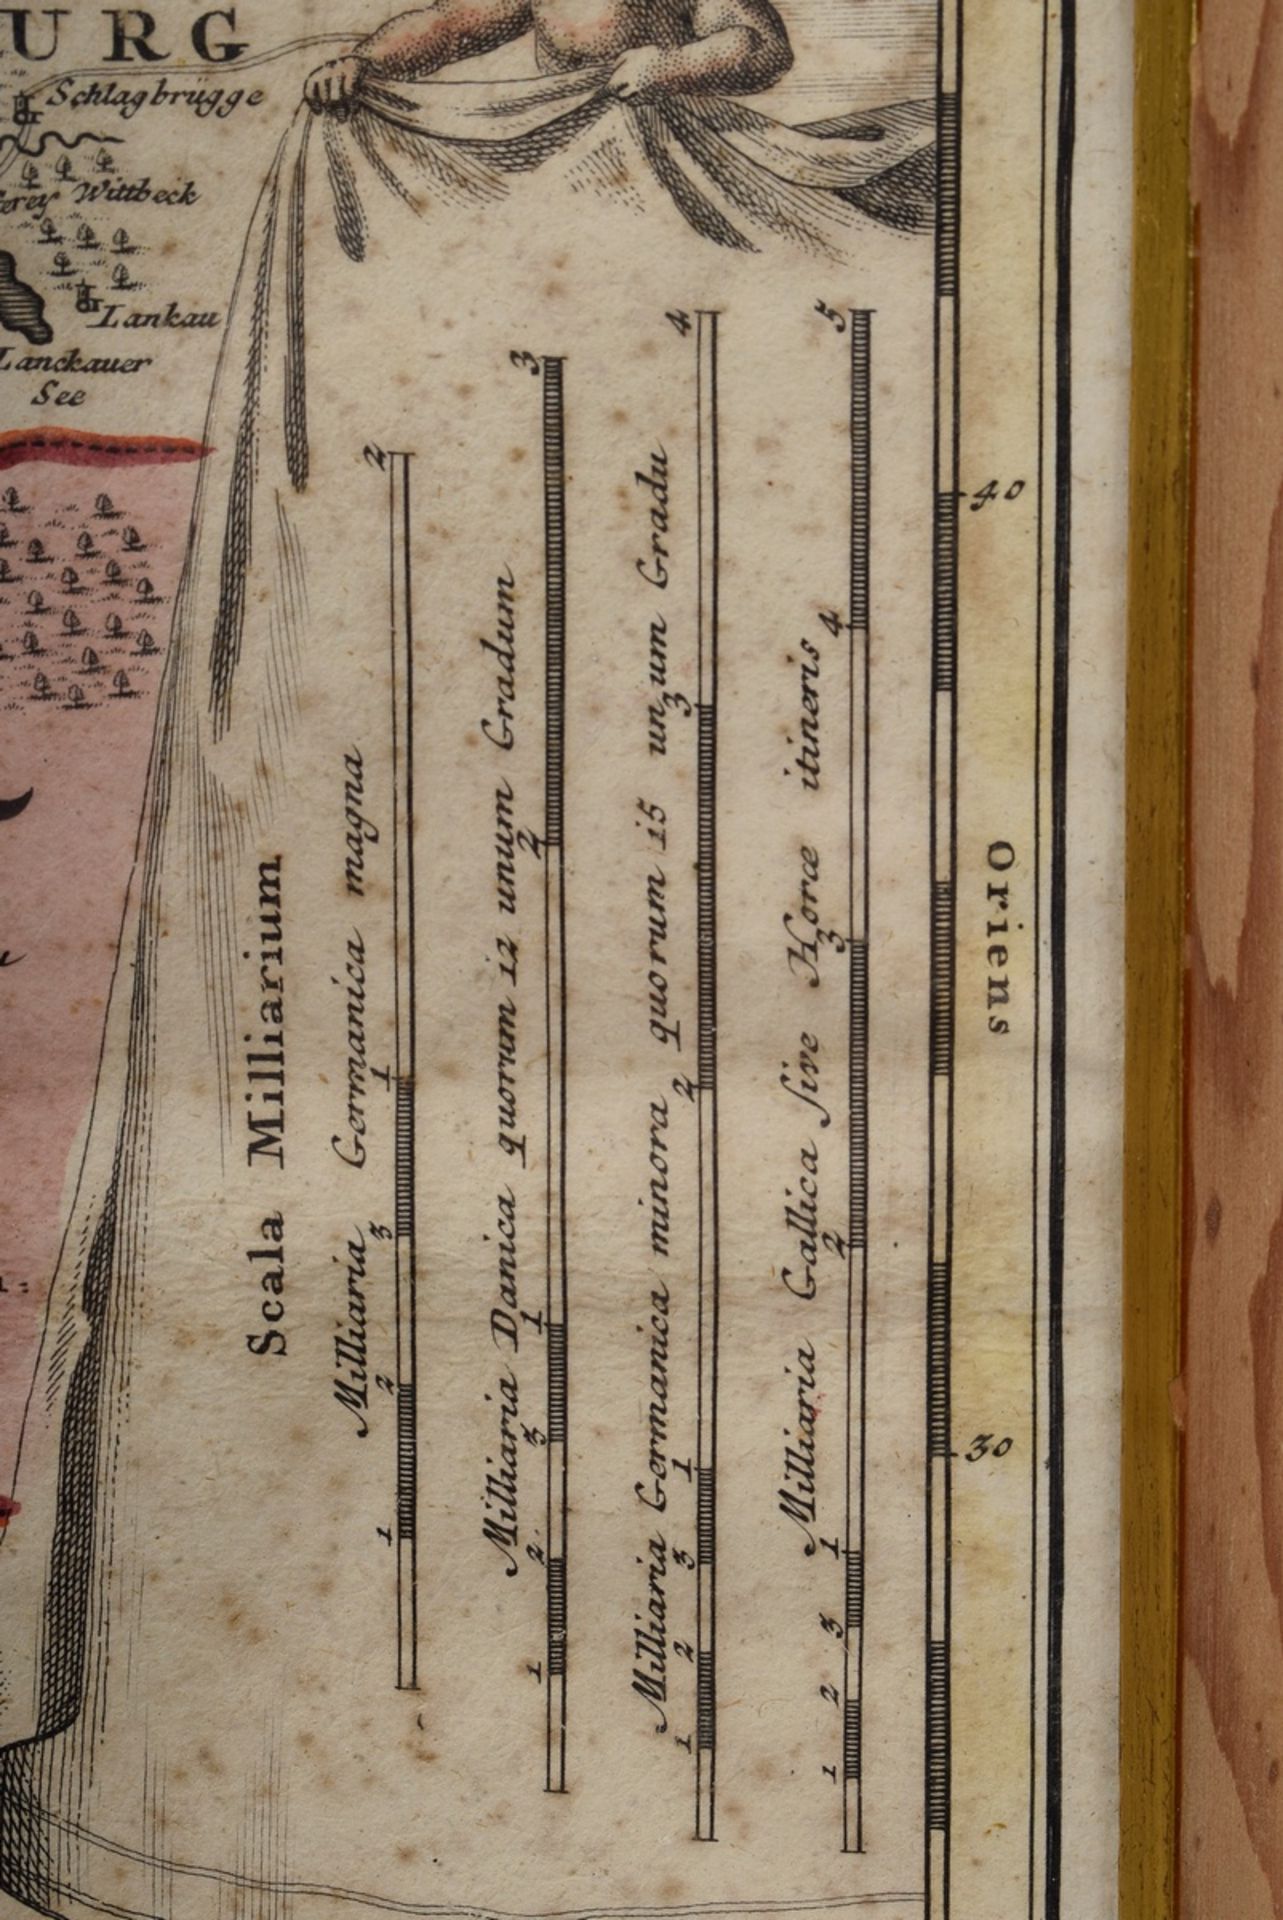 URG
Schlagbrügge
Wittbeck
Lankau
Lanckauer
See
Scala Milliarium
Milliaria Germanica magna
1 2 3 1 2
Milliaria Danica quorum 12 unum Gradum
1 2 3 1 2 3
Milliaria Germanica minora quorum 15 unum Gradu
1 2 3 1 2 3 4
Milliaria Gallica sive Horæ itineris
1 2 3 1 2 3 4 5
40
Oriens
30